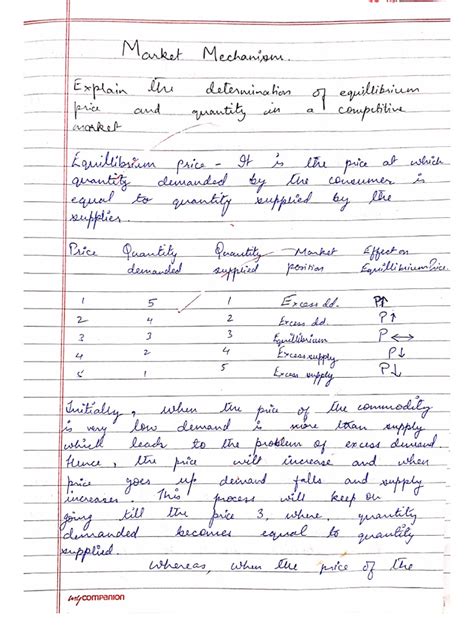 Market Mechanism.
Explain the determination of equillibrium
price and quantity in a competitive
market
Equillibrium price - It is the price at which
quantity demanded by the consumer is
equal to quantity supplied by the
supplier.
Price Quantity Quantity Market Effect on
demanded supplied position Equillibrium Price.
1 5 1 Excess dd. P↑
2 4 2 Excess dd. P↑
3 3 3 Equilibrium P ↔
4 2 4 Excess supply P↓
5 1 5 Excess supply P↓
Initially, when the price of the commodity
is very low demand is more than supply
which leads to the problem of excess demand.
Hence, the price will increase and when
price goes up demand falls and supply
increases. This process will keep on
going till the price 3, where, quantity
demanded becomes equal to quantity
supplied.
Whereas, when the price of the
companion